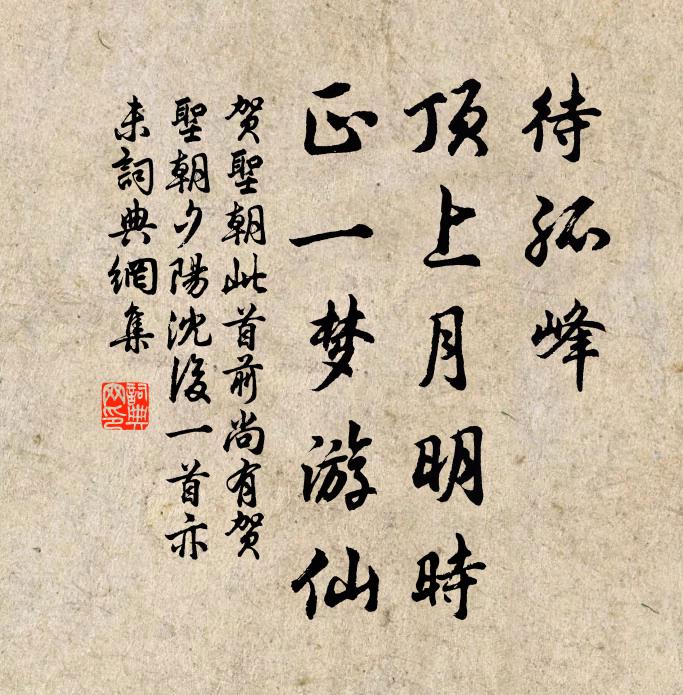 待孤峰
顶上月明時
正一梦游仙
贺聖朝此首前尚有贺
聖朝夕陽沈後一首亦
未詞典網集
詞典网印